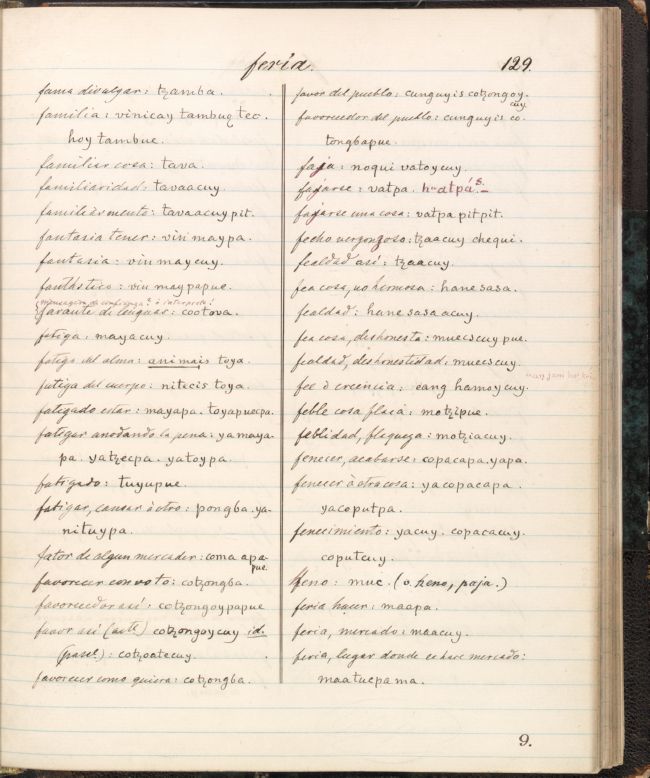 feria.
129.
fama divulgar: tzamba.
familia: vinicay tambue tec.
hoy tambue.
familiar cosa: tava.
familiaridad: tavaacuy.
familiàrmente: tavaacuy pit.
fantasia tener: vin maypa.
fantasia: vin maycuy.
fantástico: vin maypapue.
faraute de lenguas: cootova.
fatiga: mayacuy.
fatiga del alma: animais toya.
fatiga del cuerpo: nitecis toya.
fatigado estar: mayapa. toyapuecpa.
fatigar añadando la pena: yamaya-
pa. yatzecpa. yatoypa.
fatigado: tuyupue.
fatigar, cansar à otro: pongba. ya-
nituypa.
fator de algun mercader: coma apa-
pue.
favorecer con voto: cotzongba.
favorecedor así: cotzongoypapue
favor así (acte.) cotzongoycuy id.
(pase.): cotzoatecuy.
favorecer como quiera: cotzongba.
favor del pueblo: cunguyis cotzongoy-
cuy.
favorecedor del pueblo: cunguyis co-
tongbapue.
faja: noqui vatoycuy.
fajarse: vatpa. hua tpá s.
fajarse una cosa: vatpa pitpit.
fecho vergonzoso: tzaacuy chequi.
fealdad así: tzaacuy.
fea cosa, no hermosa: hanesasa.
fealdad: hanesasa acuy.
fea cosa, deshonesta: muecscuy pue.
fealdad, deshonestidad: muecscuy.
fee ò creencia: eang hamoycuy.
feble cosa flaca: motzipue.
feblidad, flaqueza: motziacuy.
fenecer, acabarse: copacapa. yapa.
fenecer à otra cosa: yacopacapa.
yacoputpa.
fenecimiento: yacuy. copacacuy.
coputcuy.
feno: muc. (o. heno, paja.)
feria hacer: maapa.
feria, mercado: maacuy.
feria, lugar donde se hace mercado:
maatucpama.
9.